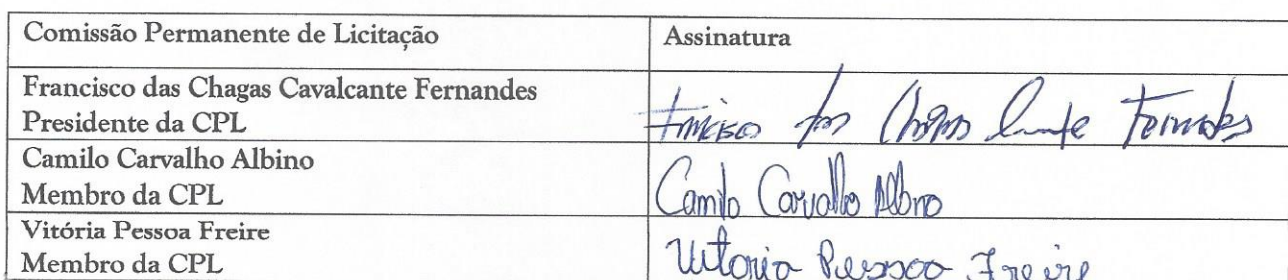 Comissão Permanente de Licitação
Assinatura
Francisco das Chagas Cavalcante Fernandes
Presidente da CPL
Francisco das Chagas Fernandes
Camilo Carvalho Albino
Membro da CPL
Camilo Carvalho Albino
Vitória Pessoa Freire
Membro da CPL
Vitoria Pessoa Freire